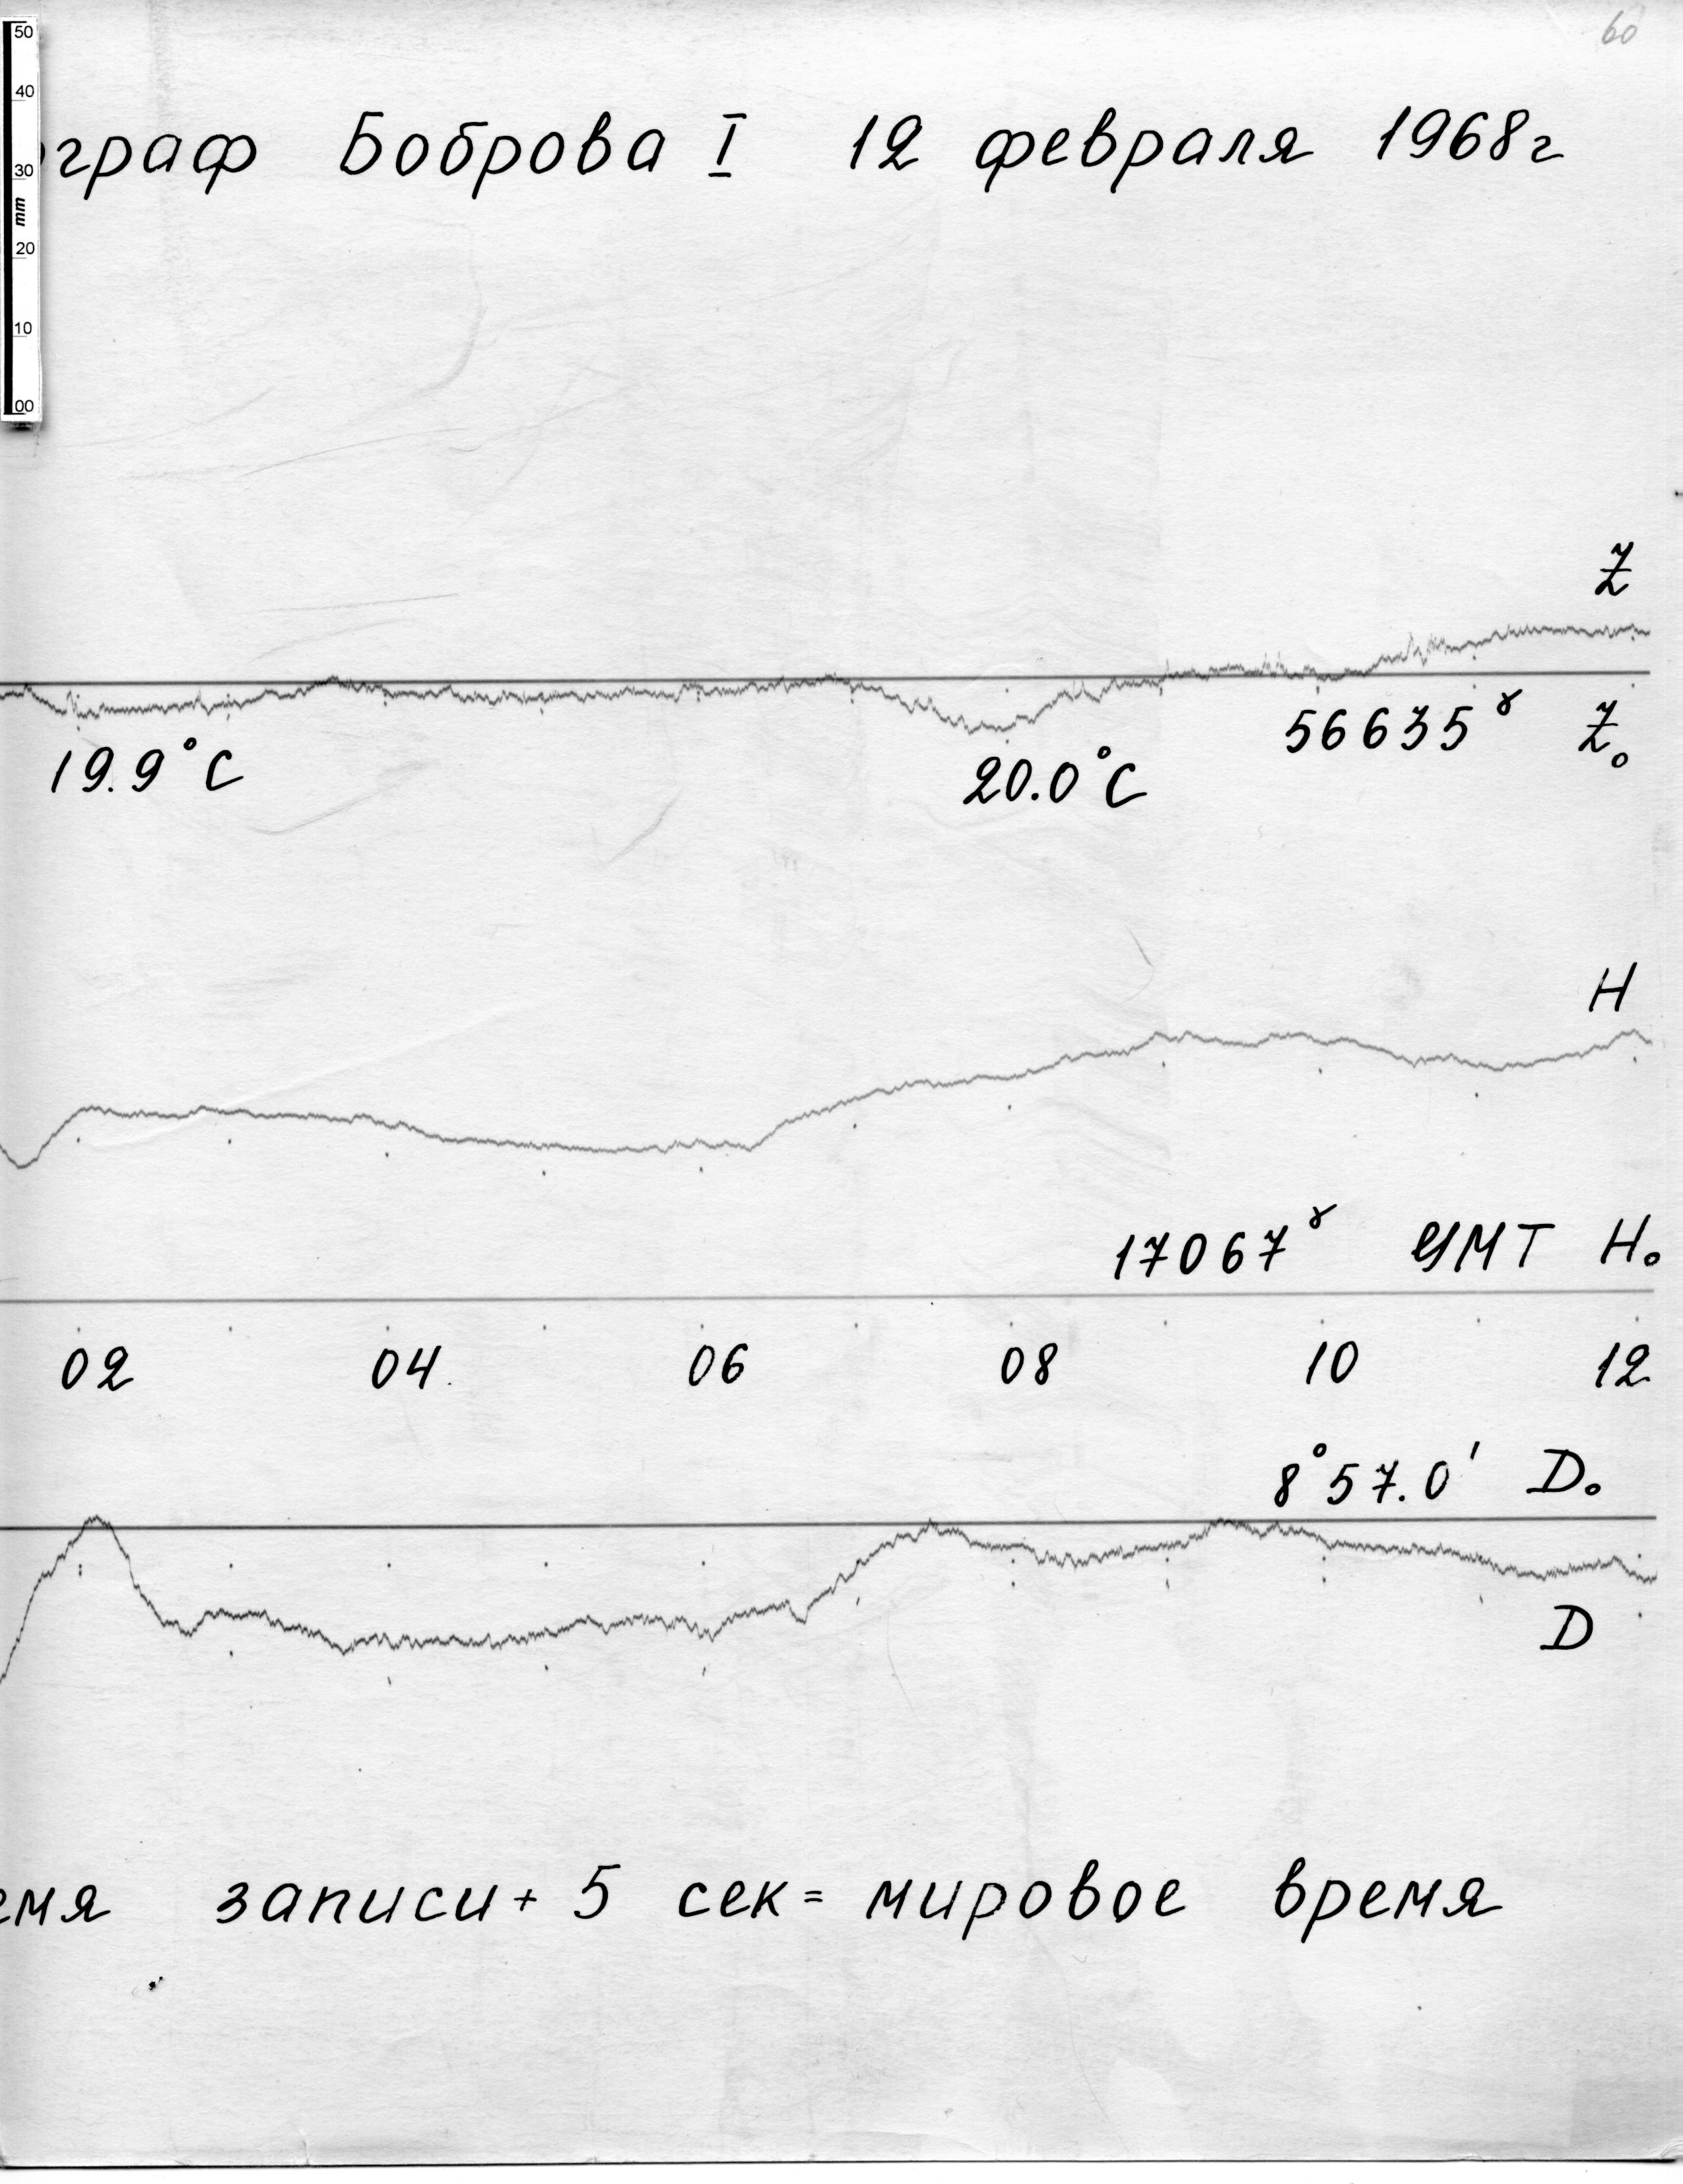 60
50
40
30
mm
20
10
00
ограф Боброва I 12 февраля 1968г
Z
56635ˠ Z₀
19.9°C 20.0°C
H
17067ˠ УМТ H₀
02 04 06 08 10 12
8°57.0' D₀
D
емя записи + 5 сек = мировое время